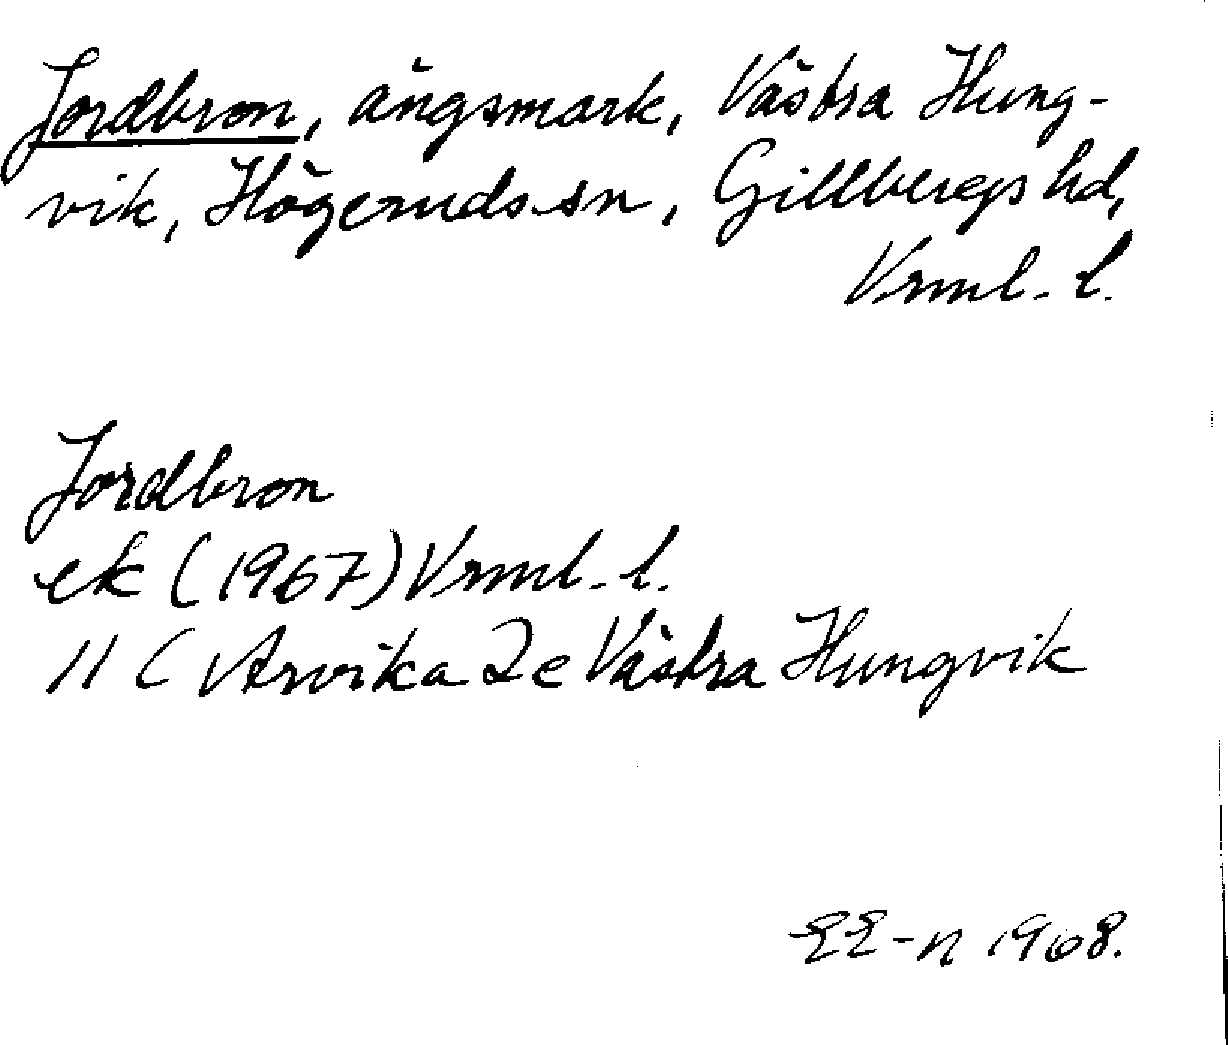 Jordbron, ängsmark, Västra Hung-
vik, Högeruds sn, Gillbergs hd,
Vrml. l.
Jordbron
ek (1967) Vrml. l.
11 C Arvika 2 e Västra Hungvik
EE-n 1968.